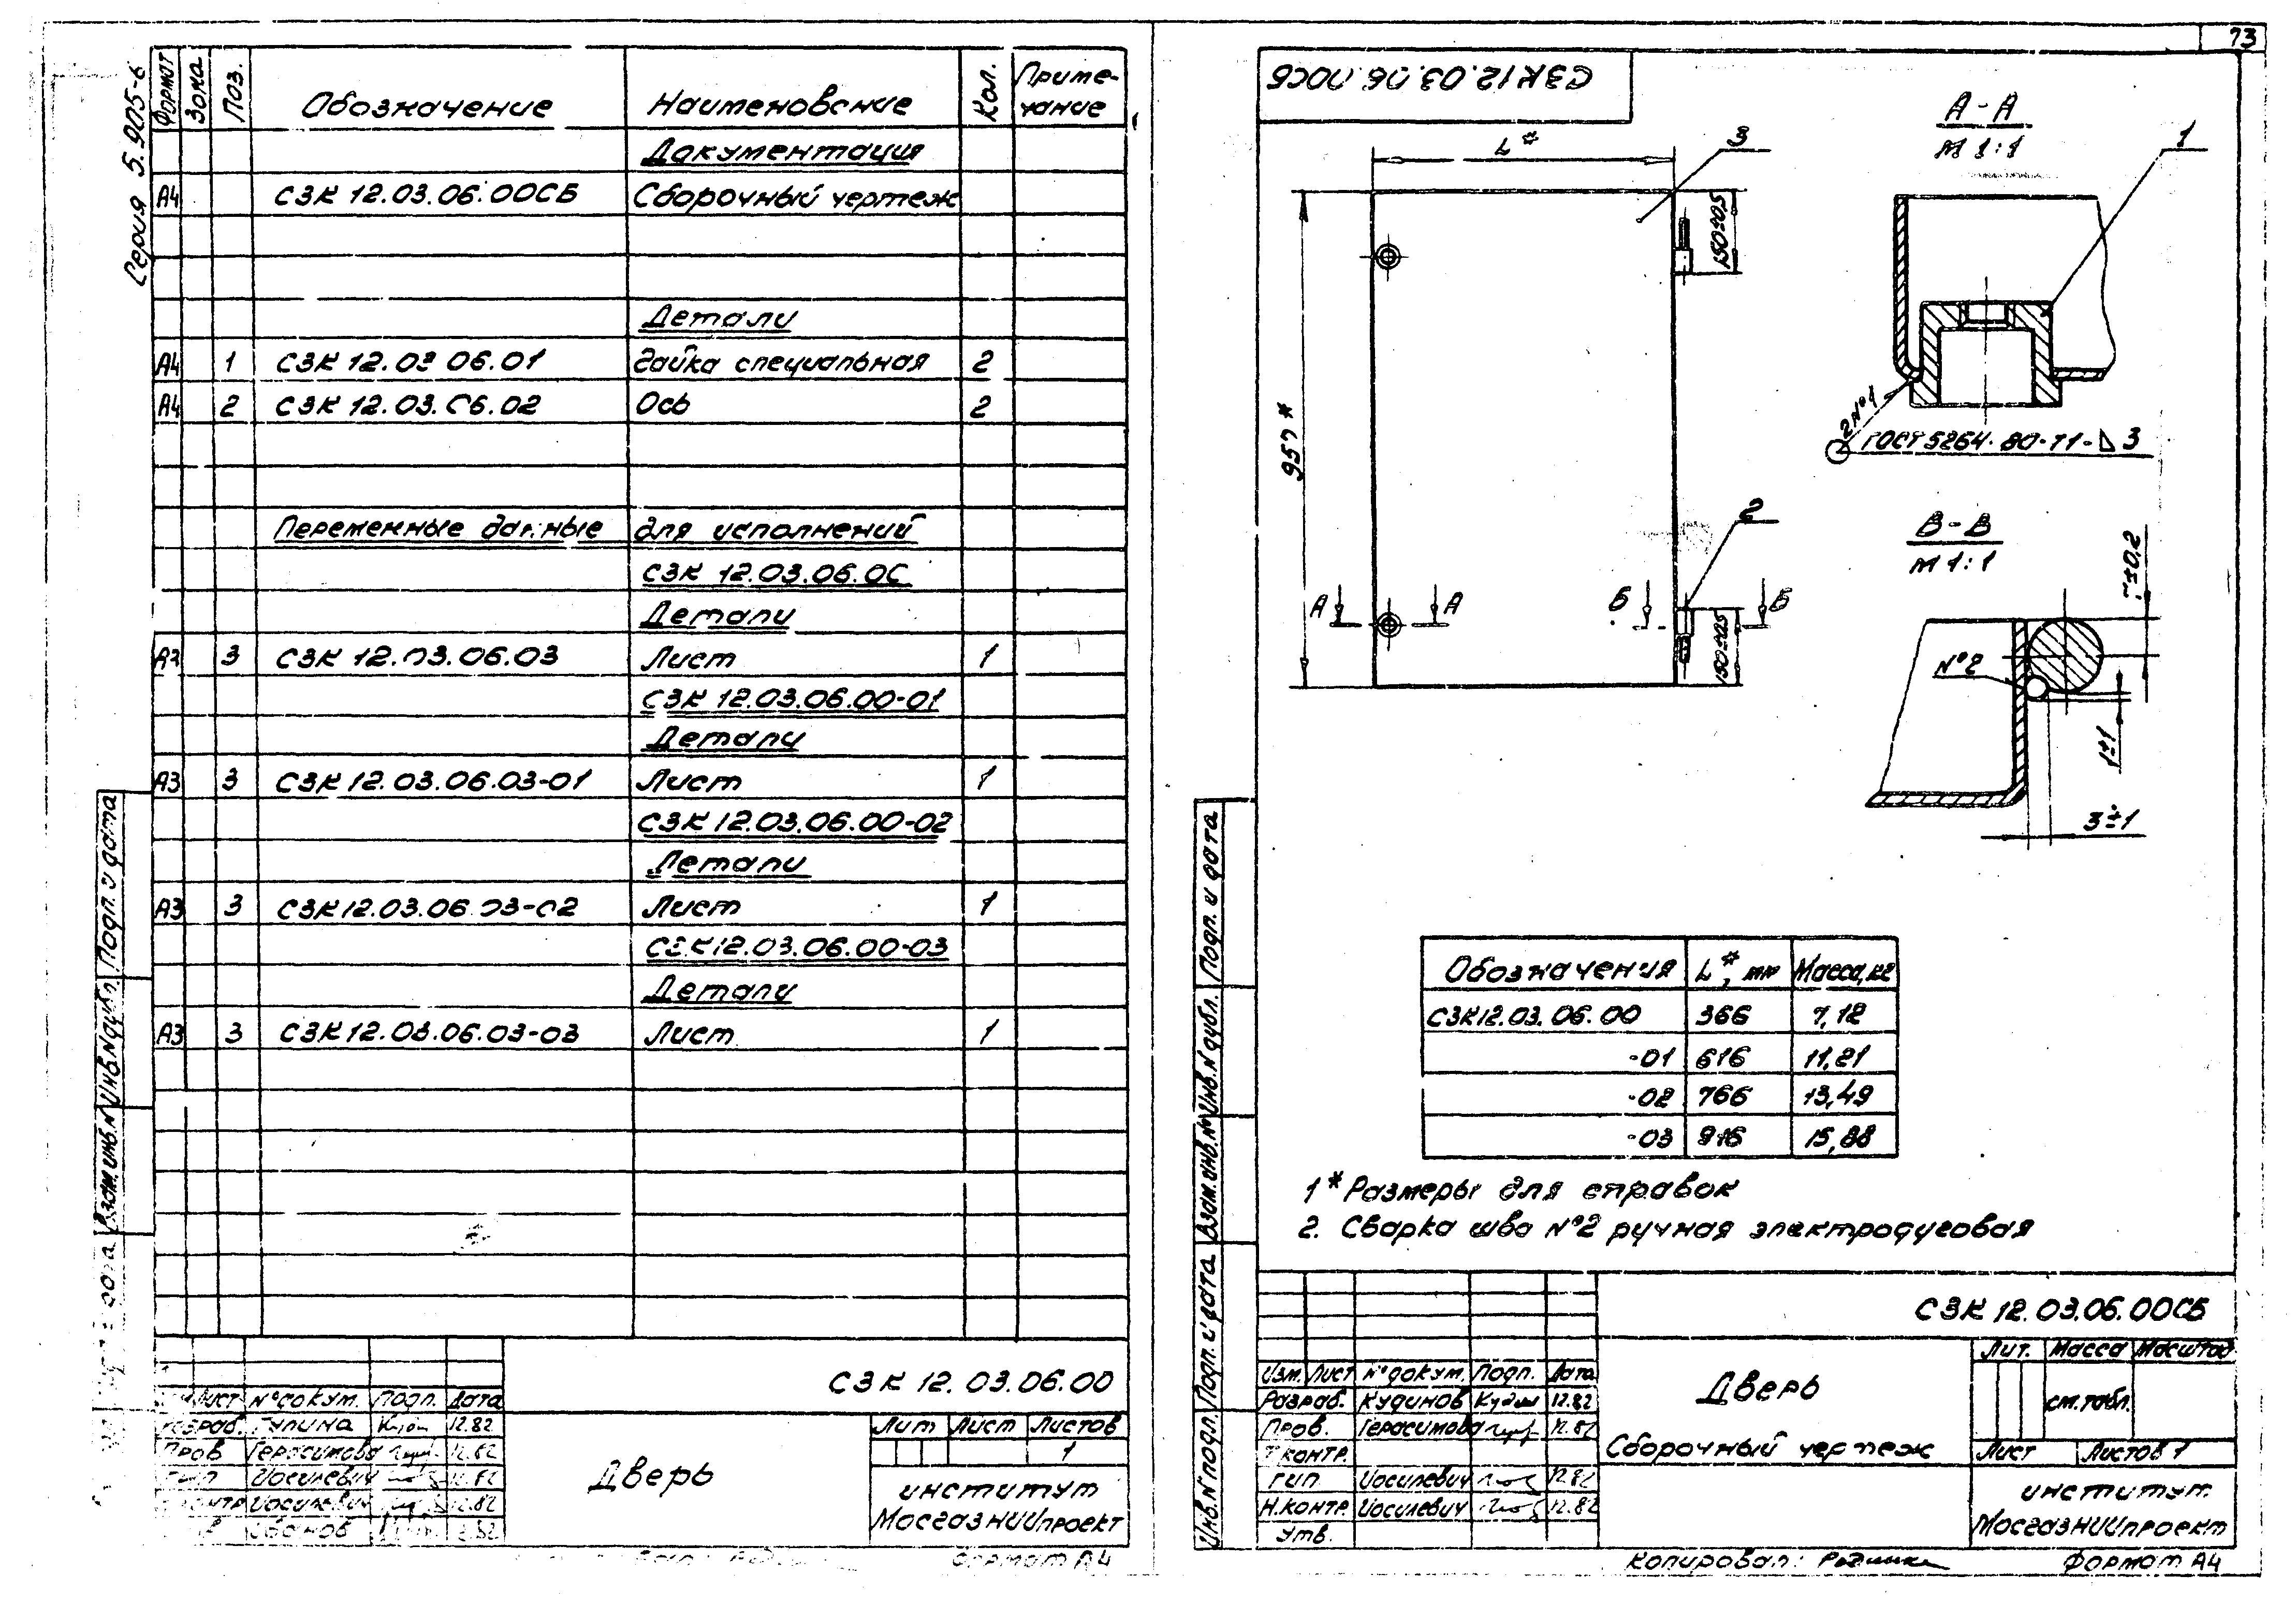 Серия 5.905-6
Формат Зона Поз. Обозначение Наименование Кол. Приме-
чание
Документация
А4 СЗК 12.03.06.00СБ Сборочный чертеж
Детали
А4 1 СЗК 12.03 06.01 Гайка специальная 2
А4 2 СЗК 12.03.06.02 Ось 2
Переменные данные для исполнений
СЗК 12.03.06.00
Детали
А3 3 СЗК 12.03.06.03 Лист 1
СЗК 12.03.06.00-01
Детали
А3 3 СЗК 12.03.06.03-01 Лист 1
СЗК 12.03.06.00-02
Детали
А3 3 СЗК 12.03.06.03-02 Лист 1
СЗК 12.03.06.00-03
Детали
А3 3 СЗК 12.03.06.03-03 Лист 1
Подп. и дата
Инв.N дубл.
Взам.инв.N
СЗК 12.03.06.00
Лист N°докум. Подп. Дата
Разраб. Гулина 12.82
Пров Герасимова 12.82
ГИП Иосилевич 12.82
Н.контр Иосилевич 12.82
Иванов 12.82
Дверь
Лит Лист Листов
1
институт
МосгазНИИпроект
Формат А4
73
СЗК12.03.06.00СБ
L*
3
150±0,5
950*
А А
Б Б
2
150±0,5
А-А
М 1:1
1
2 N°1
ГОСТ 5264-80-Т1-◺ 3
В-В
М 1:1
7±0,2
N°2
1±1
3±1
Обозначения L*, мм Масса,кг
СЗК12.03.06.00 366 7,12
-01 616 11,21
-02 766 13,49
-03 916 15,88
1* Размеры для справок
2. Сварка шва N°2 ручная электродуговая
Подп. и дата
Инв.N дубл.
Взам.инв.N
Подп. и дата
Инв.N подл.
СЗК 12.03.06.00СБ
Изм. Лист N°докум. Подп. Дата
Разраб. Кудинов 12.82
Пров. Герасимова 12.82
Т.контр.
ГИП Иосилевич 12.82
Н.контр. Иосилевич 12.82
Утв.
Дверь
Сборочный чертеж
Лит. Масса Масштаб
см.табл.
Лист Листов 1
институт
МосгазНИИпроект
Копировал:
Формат А4